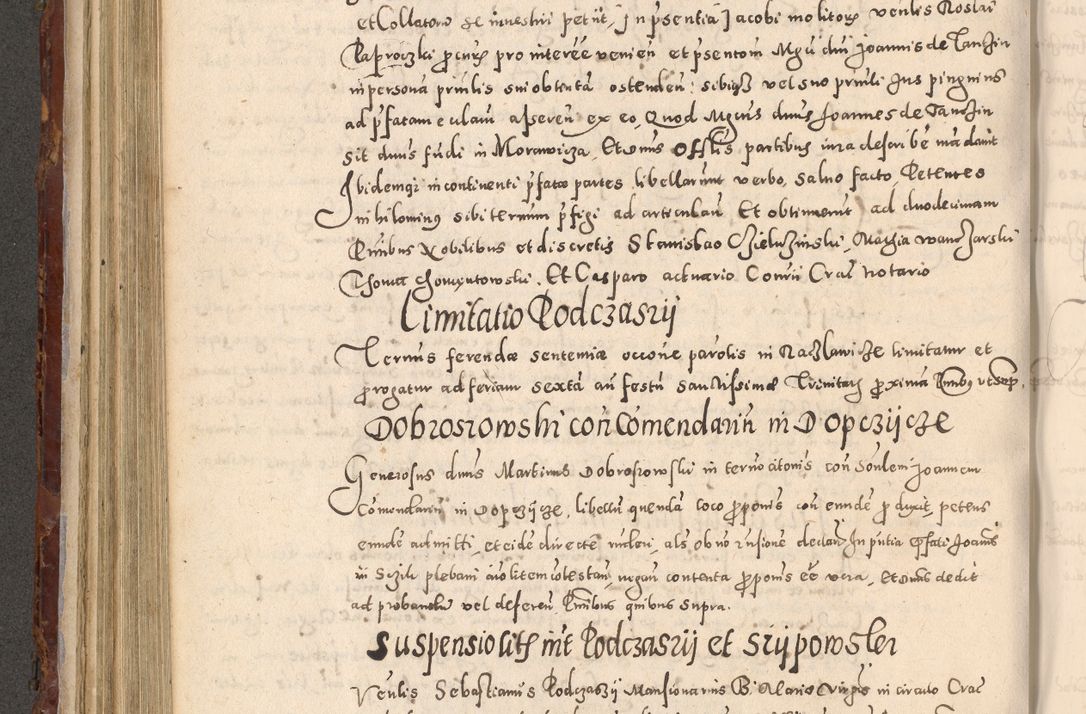 et Collatorē se investiri petiit, in pn̄sentia Jacobi molitoris ven̄lis Roslai
Paproczki procuris pro interēe venien̄ et pn̄sentem Mgcu dni Joannis de Tanczin
in persona prn̄lis sui obtenta ostenden: sibiqz vel suo prn̄li Jus pinguius
ad pfatam eccl̄am asseren̄ ex eo, Quod Mgcus dnus Joannes de Tanczin
sit dnus fūdi in Morawicza, Et dnus Offlis partibus iura describē mādavit
Ibidemqz in continenti pfatæ partes libellarunt verbo, salvo facto, Petentes
nihilominus sibi terminum pfigi ad articulan̄ Et obtinuerūt ad duodecimam
Pn̄tibus Nobilibus et discretis Stanislao Czieluzinski, Mathia wanczarski
Thoma Chomentowski, Et Casparo actuario Con̄rii Crac̄ Notario
Limitatio Podczaszij
Terminus ferendæ sententiæ occone parolis in Raczlawicze limitatur et
prorogatur ad feriam sextā an̄ festū sanctissimæ Trinitatis proximā Pn̄tibus ut sup.
Dobrosrowski con Comendariū in Dopczijcze
Generosus dnus Martinus Dobrosrowski in termō citonis con̄ Joannem
Comendariū in Dopczijcze, libellū quendā loco proponis con̄ eundē produxit, petens
eundē admitti, et eidē directe, als ob nō rn̄sione declarari In pn̄tia pfati Joannis
in Szijk plebani litem contestan̄ negan̄ contenta proponis eē vera, Et dnus dedit
ad probandū vel deferen̄, Pn̄tibus quibus supra.
Suspensio litis int Podczaszij et Srijpowski
Ven̄lis Sebastianus Podczaszij Mansionarius B. Mariæ Virginis in circulo Crac̄